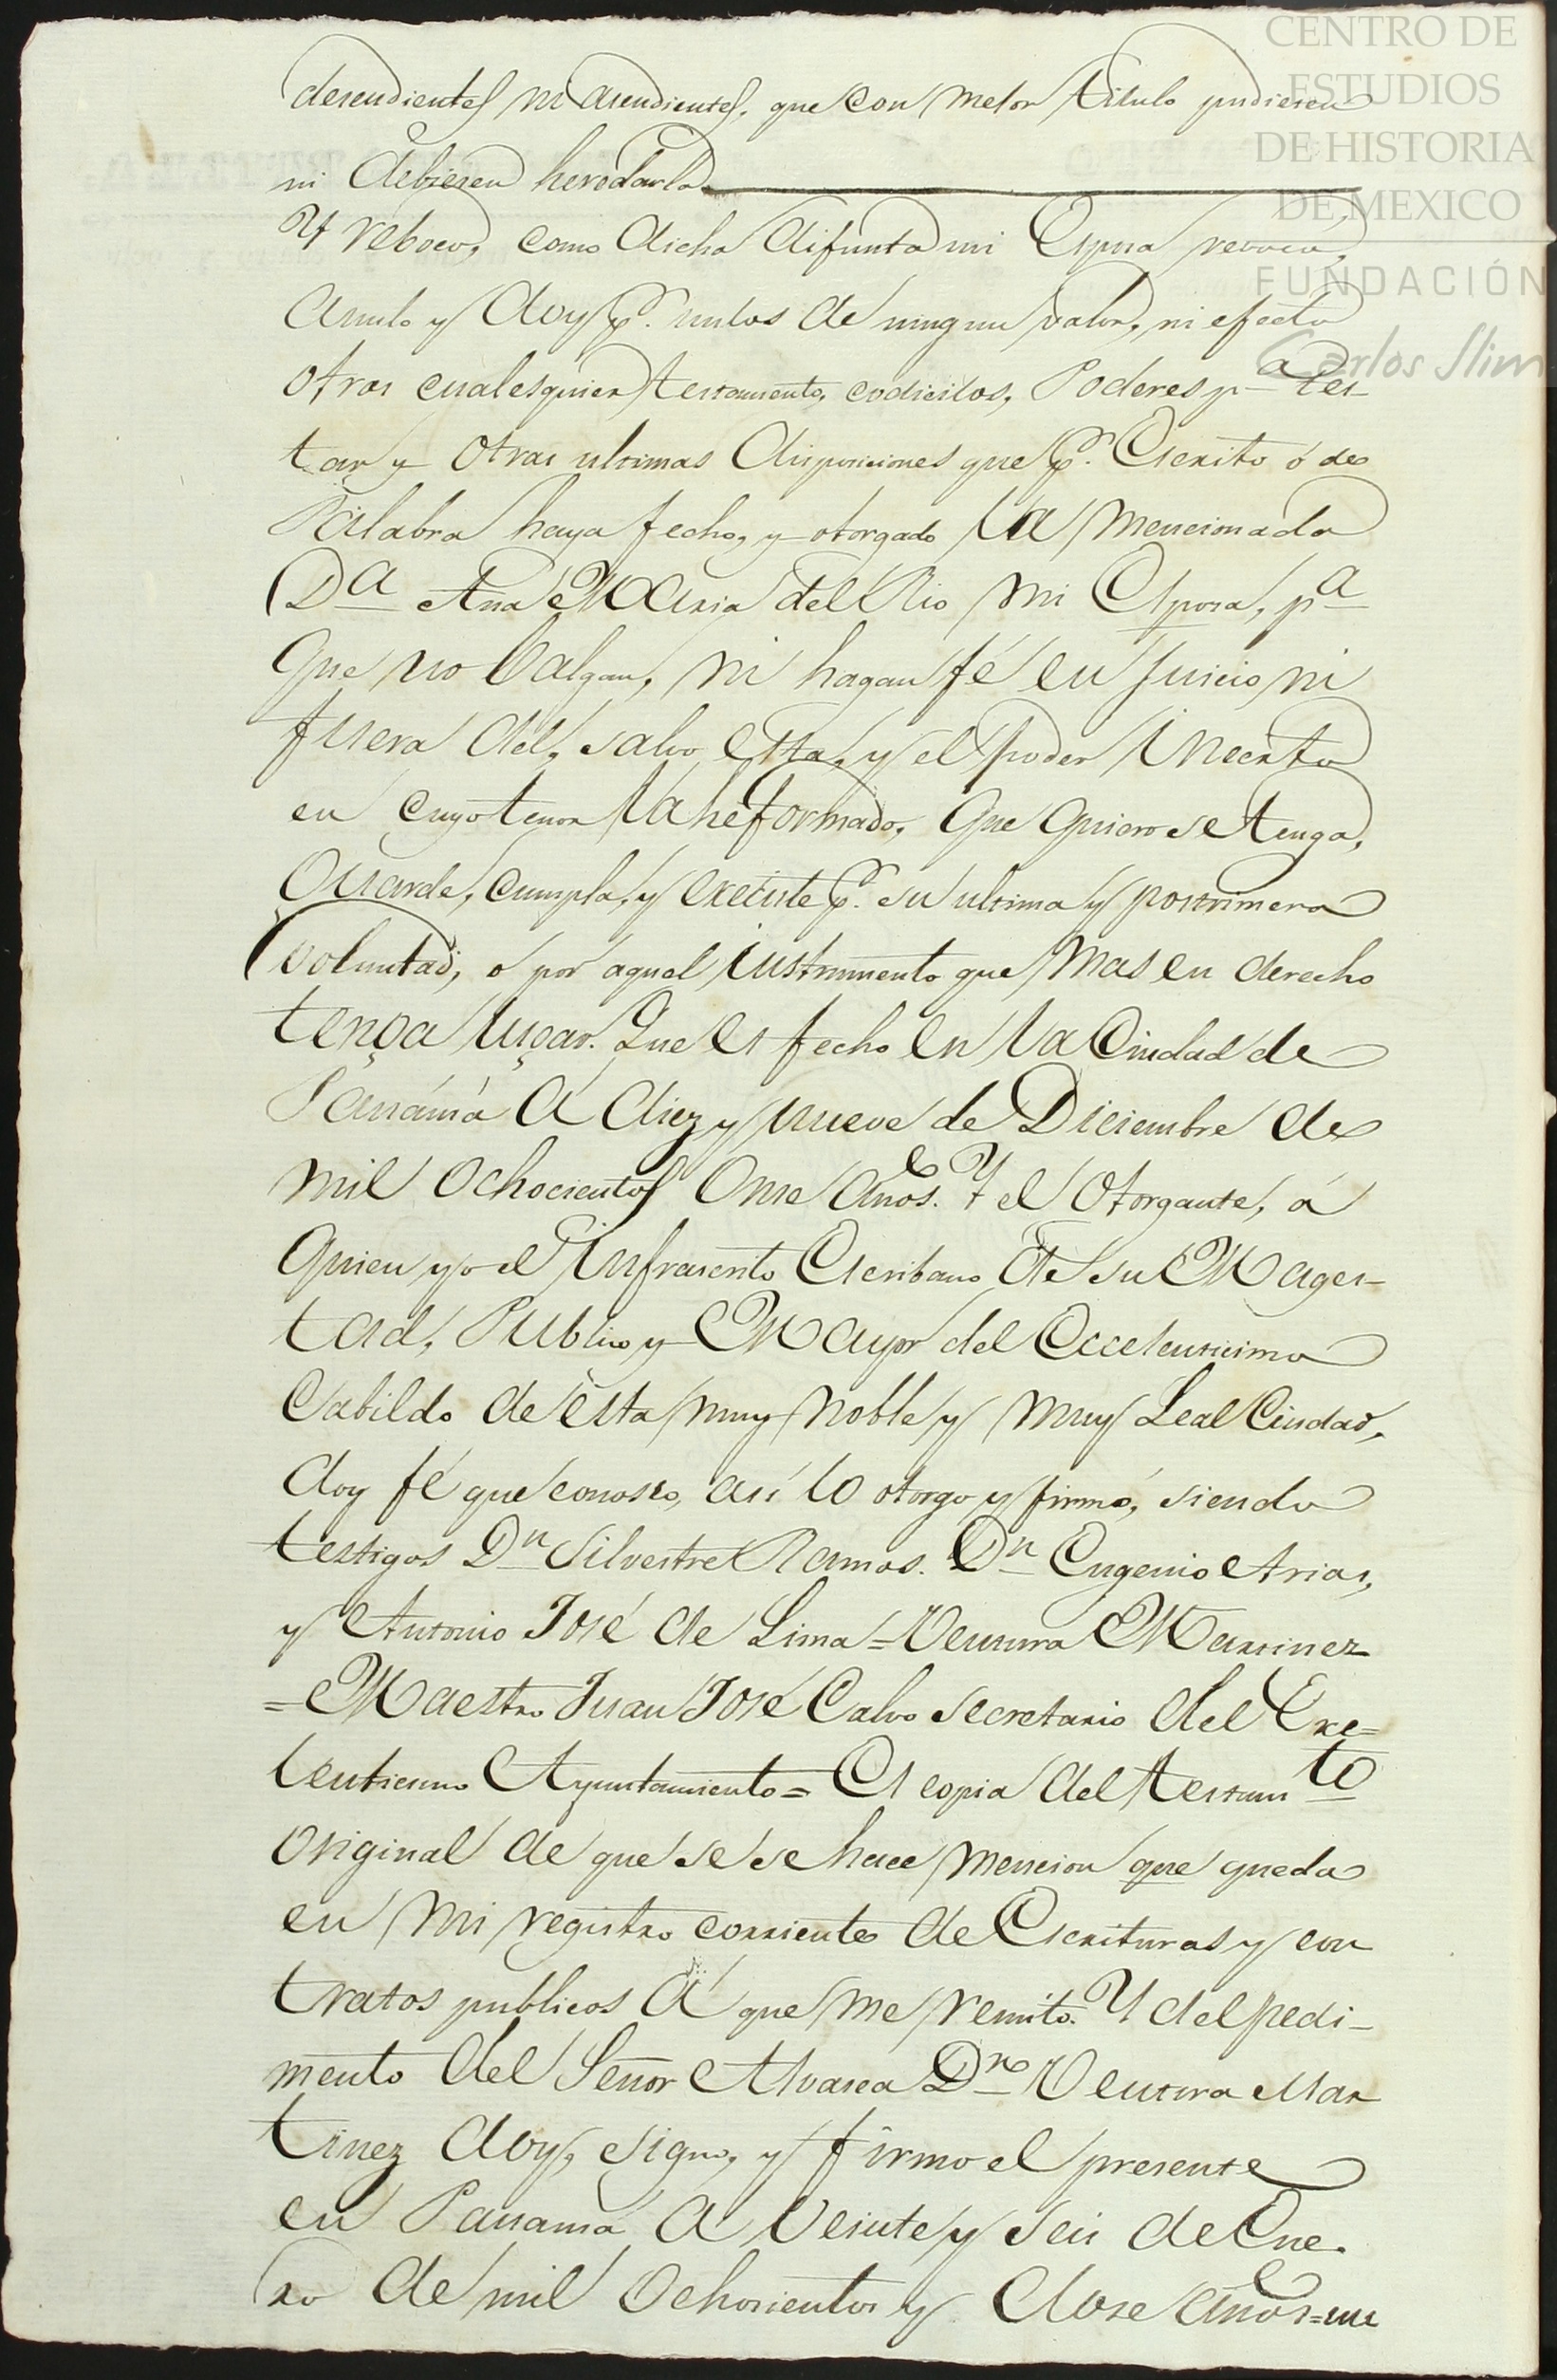 CENTRO DE
ESTUDIOS
DE HISTORIA
DE MEXICO
FUNDACIÓN
Carlos Slim
desendientes ni asendientes, que con mejor titulo pudiesen
ni debiesen heredarla
Y reboco, como dicha difunta mi Esposa revoca,
anulo y doy pr. nulos de ningun valor, ni efecto
otros cualesquier testamento, codicilos, Poderes pa tes-
tar y otras ultimas disposiciones que pr. Escrito ó de
Palabra haya fecho, y otorgado la mencionada
Da Ana Maria del Rio mi Esposa, pa
que no balgan, ni hagan fé en juicio, ni
fuera del, salvo esta, y el poder incerto
en cuyo tenor la he formado, que quiero se tenga,
Guarde, cumpla, y execute pr. su ultima y postrimera
voluntad, ó por aquel instrumento que mas en derecho
tenga lugar. Que es fecho en la Ciudad de
Panamá á diez y nueve de Diciembre de
mil ochocientos onse años. Y el otorgante, á
quien yo el infrascrito Escribano de su Mages-
tad, Publico y Mayor del Eccelentisimo
Cabildo de esta muy noble y muy Leal Ciudad,
doy fé que conosco, asi lo otorgo y firmó, siendo
testigos Dn Silvestre Ramos. Dn Eugenio Arias,
y Antonio José de Lima = Ventura Martinez
= Maestro Juan José Calvo Secretario del Exe=
lentisimo Ayuntamiento = Es copia del testamto
original de que se se hace mencion que queda
en mi registro corriente de Escrituras y con
tratos publicos á que me remito. Y del pedi-
mento del Señor Albasea Dn Ventura Mar
tinez doy, signo, y firmo el presente
en Panamá á veinte y seis de Ene-
ro de mil ochosientos y dose años=